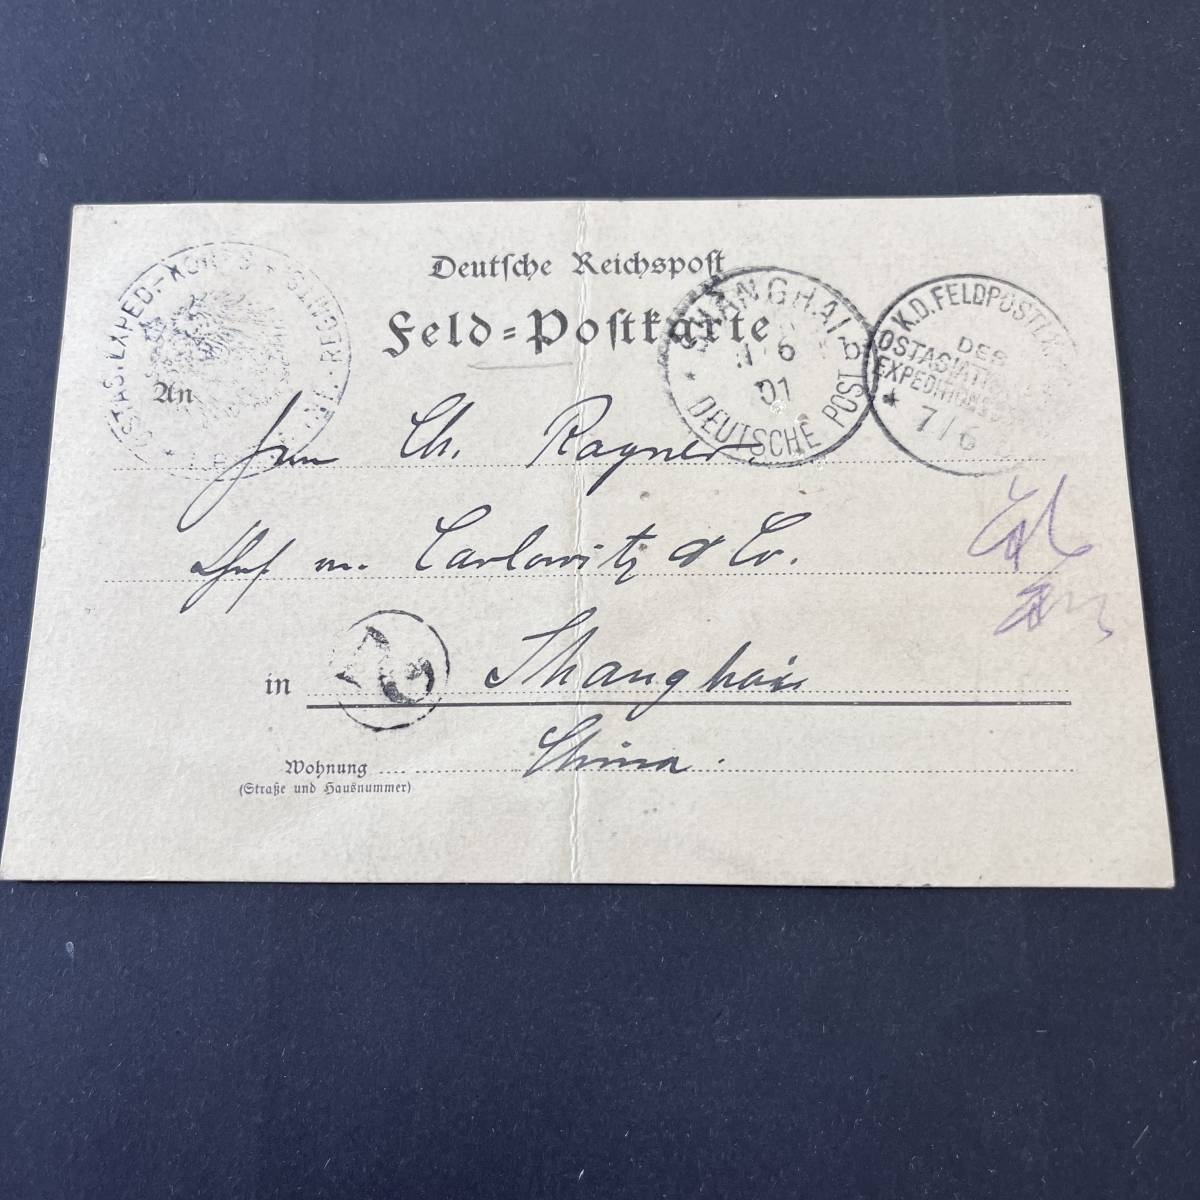 Deutsche Reichspost
Feld=Postkarte
OSTAS. EXPED.-KORPS
SHANGHAI b
6
01
* DEUTSCHE POST
K.D. FELDPOSTEXP.
DES
OSTASIATISCHEN
EXPEDITIONSCORPS
* 7/6
An
Herrn Ch. Rayner.
Carlowitz & Co.
in Shanghai
China.
Wohnung
(Straße und Hausnummer)